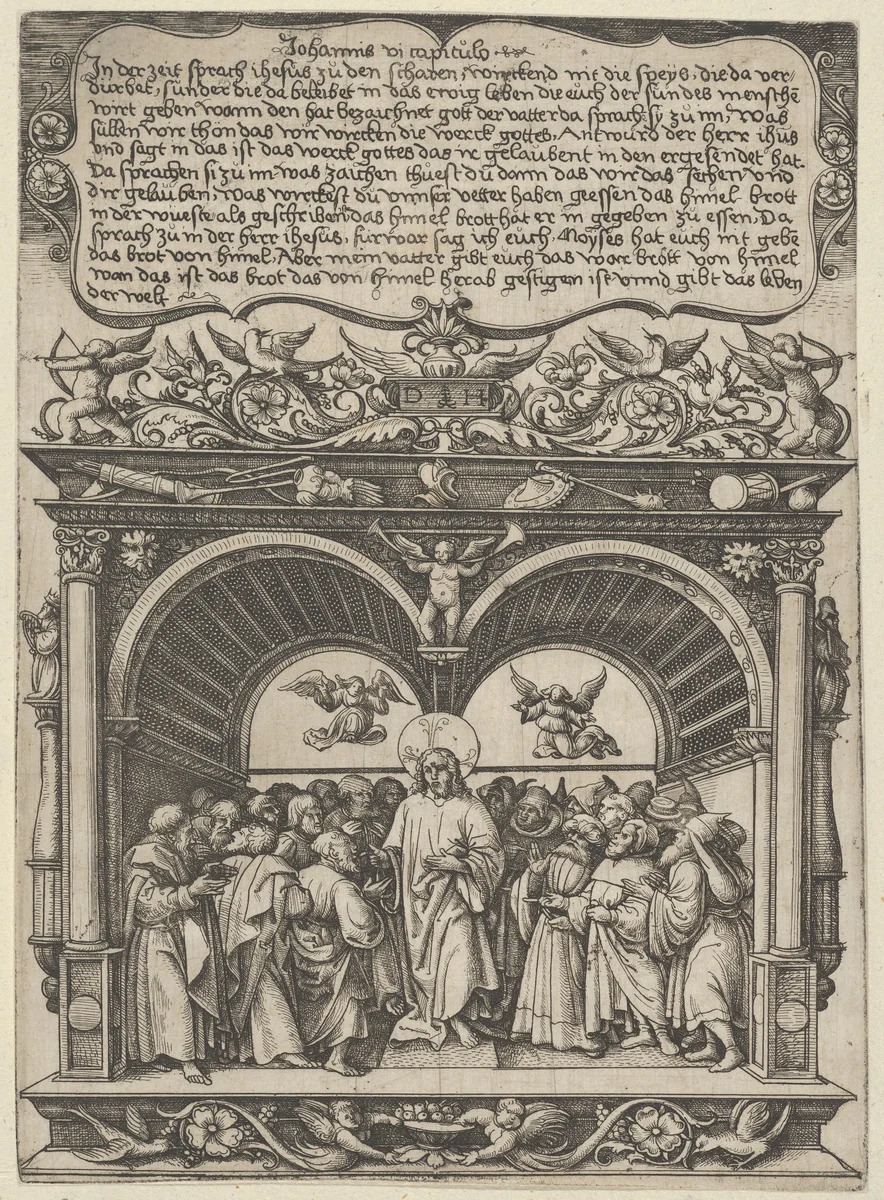 Johannis vi capitulo
In der zeit sprach ihesus zu den scharen, wirckend nit die speys, die da ver/
dürbet, sunder die da beleibet in das ewig leben die euch der sun des menschē
wirt geben wann den hat bezaichnet gott der vatter da sprach sy zu im, was
süllen wir thon das wir wircken die werck gottes, Antwurd der herr ihus
vnd sagt in das ist das werck gottes das ir gelaubent in den er gesendet hat.
Da sprachen si zu im was zaichen thuest du dann das wir das sechen vnd
dir gelauben, was wirckest du vnnser vetter haben geessen das himel brott
in der wüeste als geschriben das himel brott hat er in gegeben zu essen, Da
sprach zu in der herr ihesus, furwar sag ich euch, Moyses hat euch nit gebē
das brot von himel, Aber mein vatter gibt euch das war brott von himel
wan das ist das brot das von himel herab gestigen ist vnnd gibt das leben
der welt
D H